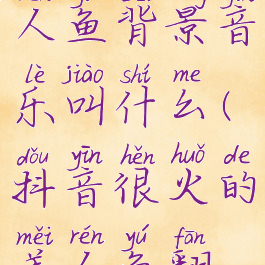 人鱼背景音
lè jiào shí me
乐叫什么(
dǒu yīn hěn huǒ de
抖音很火的
měi rén yú fān
美人鱼翻